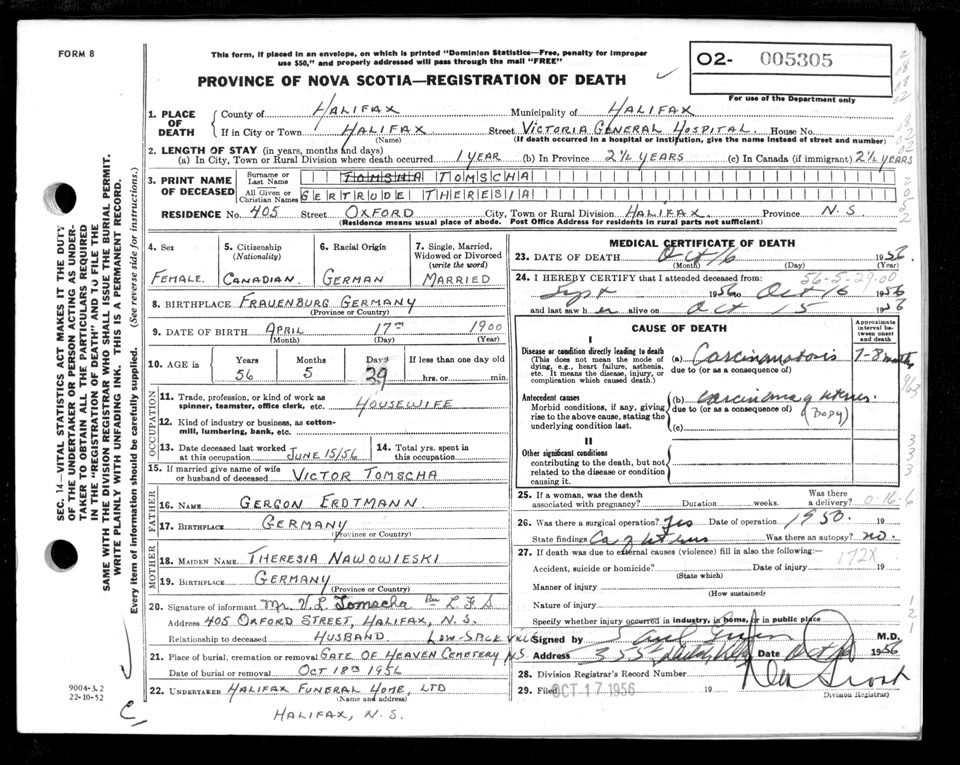 FORM 8
This form, if placed in an envelope, on which is printed "Dominion Statistics—Free, penalty for improper
use $50," and properly addressed will pass through the mail "FREE"
PROVINCE OF NOVA SCOTIA—REGISTRATION OF DEATH
O2- 005305
For use of the Department only
1. PLACE OF DEATH
County of HALIFAX Municipality of HALIFAX
If in City or Town HALIFAX Street VICTORIA GENERAL HOSPITAL House No.
(Name) (If death occurred in a hospital or institution, give the name instead of street and number)
2. LENGTH OF STAY (in years, months and days)
(a) In City, Town or Rural Division where death occurred 1 YEAR (b) In Province 2½ YEARS (c) In Canada (if immigrant) 2½ YEARS
3. PRINT NAME OF DECEASED
Surname or Last Name TOMSHA TOMSCHA
All Given or Christian Names GERTRUDE THERESIA
RESIDENCE No. 405 Street OXFORD City, Town or Rural Division HALIFAX Province N.S.
(Residence means usual place of abode. Post Office Address for residents in rural parts not sufficient)
4. Sex
FEMALE
5. Citizenship (Nationality)
CANADIAN
6. Racial Origin
GERMAN
7. Single, Married, Widowed or Divorced (write the word)
MARRIED
8. BIRTHPLACE FRAUENBURG GERMANY
(Province or Country)
9. DATE OF BIRTH APRIL 17TH 1900
(Month) (Day) (Year)
10. AGE in Years Months Days If less than one day old
56 5 29 hrs. or min.
OCCUPATION
11. Trade, profession, or kind of work as
spinner, teamster, office clerk, etc. HOUSEWIFE
12. Kind of industry or business, as cotton-
mill, lumbering, bank, etc.
13. Date deceased last worked at this occupation JUNE 15/56
14. Total yrs. spent in this occupation
15. If married give name of wife
or husband of deceased VICTOR TOMSCHA
FATHER
16. NAME GERGON ERDTMANN
17. BIRTHPLACE GERMANY
(Province or Country)
MOTHER
18. MAIDEN NAME THERESIA NAWOWIESKI
19. BIRTHPLACE GERMANY
(Province or Country)
20. Signature of informant Mr. V. L. Tomscha Per L.F.S
Address 405 OXFORD STREET, HALIFAX, N.S.
Relationship to deceased HUSBAND
21. Place of burial, cremation or removal GATE OF HEAVEN CEMETERY N.S.
Date of burial or removal OCT 18TH 1956
22. UNDERTAKER HALIFAX FUNERAL HOME, LTD
(Name and address)
HALIFAX, N.S.
MEDICAL CERTIFICATE OF DEATH
23. DATE OF DEATH Oct 16 1956
(Month) (Day) (Year)
56-5-29.00
24. I HEREBY CERTIFY that I attended deceased from:
Sept 1956 to Oct 16 1956
and last saw her alive on Oct 15 1956
CAUSE OF DEATH
Approximate interval between onset and death
I
Disease or condition directly leading to death
(This does not mean the mode of
dying, e.g., heart failure, asthenia,
etc. It means the disease, injury, or
complication which caused death.)
(a) Carcinomatosis 7-8 months
due to (or as a consequence of)
Antecedent causes
Morbid conditions, if any, giving
rise to the above cause, stating the
underlying condition last.
(b) Carcinoma of uterus
due to (or as a consequence of) (Body)
(c)
II
Other significant conditions
contributing to the death, but not
related to the disease or condition
causing it.
25. If a woman, was the death
associated with pregnancy? Duration weeks. Was there a delivery? 0-16-6
26. Was there a surgical operation? Yes Date of operation 1950. 19
State findings Ca of uterus Was there an autopsy? no.
27. If death was due to external causes (violence) fill in also the following:— 172X
Accident, suicide or homicide? Date of injury 19
(State which)
Manner of injury
(How sustained)
Nature of injury
Specify whether injury occurred in industry, in home, or in public place
Signed by M.D.
Address Date Oct 1956
28. Division Registrar's Record Number
29. Filed OCT 17 1956 19
Division Registrar)
SEC. 14—VITAL STATISTICS ACT MAKES IT THE DUTY
OF THE UNDERTAKER OR PERSON ACTING AS UNDER-
TAKER TO OBTAIN ALL THE PARTICULARS REQUIRED
IN THE "REGISTRATION OF DEATH" AND TO FILE THE
SAME WITH THE DIVISION REGISTRAR WHO SHALL ISSUE THE BURIAL PERMIT.
WRITE PLAINLY WITH UNFADING INK. THIS IS A PERMANENT RECORD.
Every item of information should be carefully supplied. (See reverse side for instructions.)
9004-3.2
22-10-52